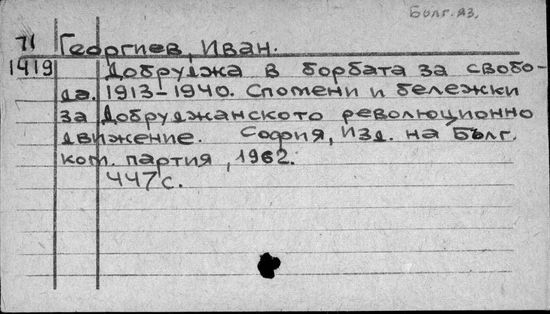 Болг. яз.
71 Георгиев, Иван.
1419 Добруджа в борбата за свобо-
да. 1913-1940. Спомени и бележки
за Добруджанското революционно
движение. София, Изд. на Бълг.
ком. партия, 1962.
447 с.